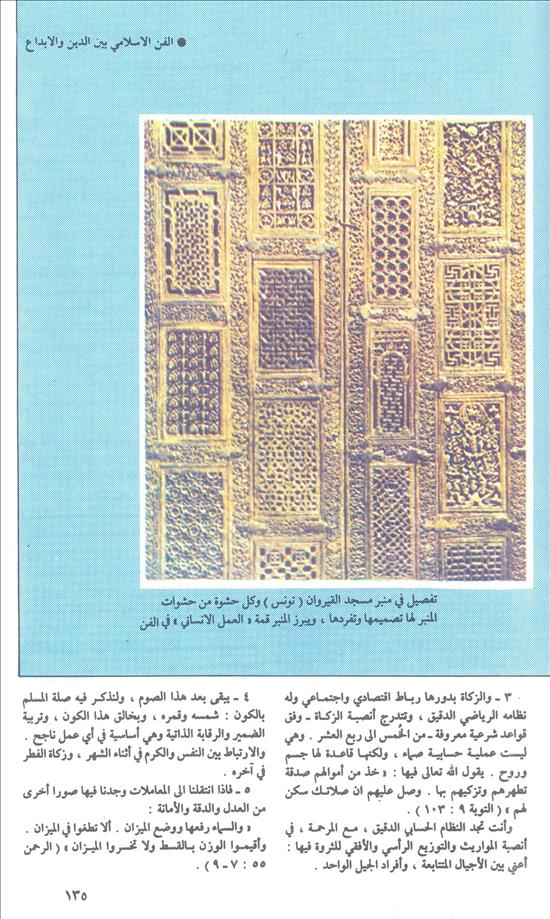 ● الفن الاسلامي بين الدين والابداع
تفصيل في منبر مسجد القيروان ( تونس ) وكل حشوة من حشوات
المنبر لها تصميمها وتفردها ، ويبرز المنبر قمة « العمل الانساني » في الفن
٣ ـ والزكاة بدورها رباط اقتصادي واجتماعي وله
نظامه الرياضي الدقيق ، وتتدرج أنصبة الزكاة ـ وفق
قواعد شرعية معروفة ـ من الخُمس الى ربع العشر . وهي
ليست عملية حسابية صماء ، ولكنها قاعدة لها جسم
وروح . يقول الله تعالى فيها : « خذ من أموالهم صدقة
تطهرهم وتزكيهم بها . وصل عليهم ان صلاتك سكن
لهم » ( التوبة ٩ : ١٠٣ ) .
وأنت تجد النظام الحسابي الدقيق ، مع المرحمة ، في
أنصبة المواريث والتوزيع الرأسي والأفقي للثروة فيها :
أعني بين الأجيال المتتابعة ، وأفراد الجيل الواحد .
٤ ـ يبقى بعد هذا الصوم ، ولنذكر فيه صلة المسلم
بالكون : شمسه وقمره ، وبخالق هذا الكون ، وتربية
الضمير والرقابة الذاتية وهي أساسية في أي عمل ناجح .
والارتباط بين النفس والكرم في أثناء الشهر ، وزكاة الفطر
في آخره .
٥ ـ فاذا انتقلنا الى المعاملات وجدنا فيها صورا أخرى
من العدل والدقة والأمانة :
« والسماء رفعها ووضع الميزان . ألا تطغوا في الميزان .
وأقيموا الوزن بالقسط ولا تخسروا الميزان » ( الرحمن
٥٥ : ٧ ـ ٩ ) .
١٣٥